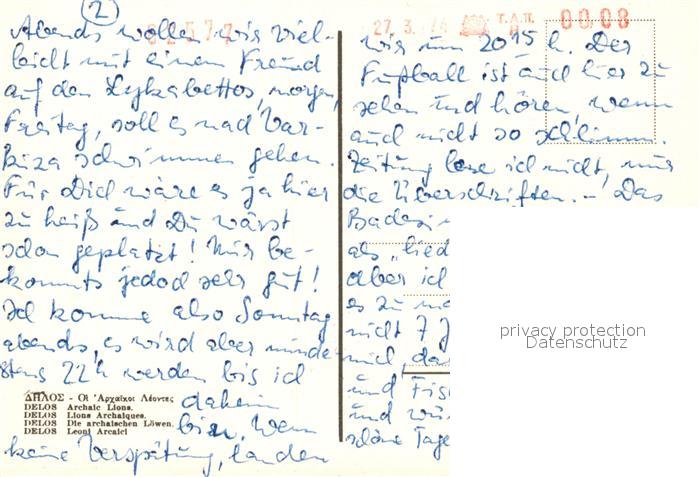 2
27.3.
T.A.П.
00.08
Abends wollen wir viel-
leicht mit einem Freund
auf den Lykabettos, morgen,
Freitag, soll es nach Var-
kiza schwimmen gehen.
Für Dich wäre es ja hier
zu heiß und Du wärst
schon geplatzt! Mir be-
kommts jedoch sehr gut!
Ich komme also Sonntag
abends, es wird aber minde-
stens 22h werden bis ich
daheim
bin. Wenn
keine Verspätung, landen
ΔΗΛΟΣ - Οἱ Ἀρχαϊκοι Λέοντες
DELOS Archaic Lions.
DELOS Lions Archaïques.
DELOS Die archaischen Löwen.
DELOS Leoni Arcaici
wir um 20 15 h. Der
Fußball ist auch hier zu
sehen und hören, wenn
auch nicht so schlimm.
Zeitung lese ich nicht, nur
die Überschriften. - Das
als "lied
aber ich
es zu
nicht 7 J
mich, das
und Fis
und
schöne Tage
privacy protection
Datenschutz